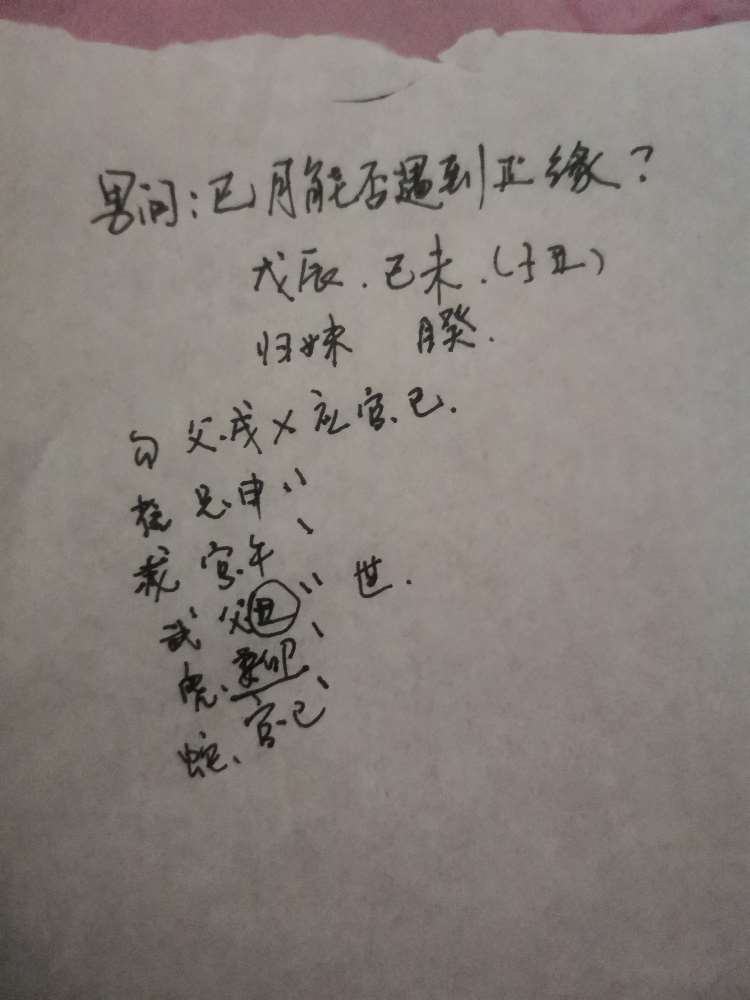 男问:巳月能否遇到正缘?
戊辰.己未.(子丑)
归妹 睽.
勾 父.戌 X 应 官.巳.
兄.申 〃
官.午 、
武 父丑 〃 世.
虎、妻卯 、
蛇、官.巳 、